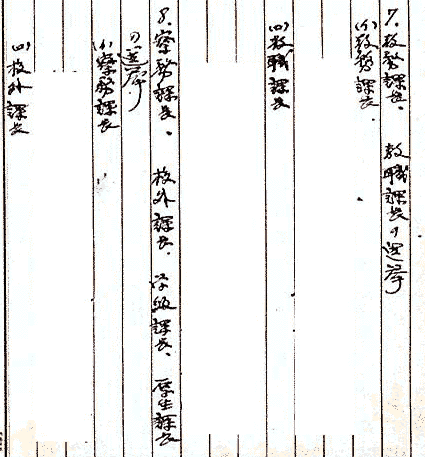 7. 教務課長、教職課長の選挙
(イ)教務課長
(ロ)教職課長
8. 寮務課長、校外課長、学級課長、厚生課長
の選挙
(イ)寮務課長
(ロ)校外課長